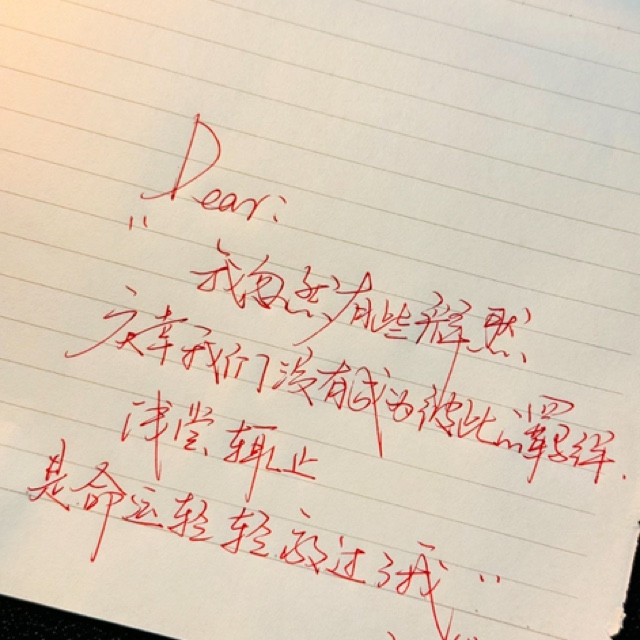 Dear:
"
我忽然有些释然
庆幸我们没有成为彼此的羁绊.
浅尝辄止
是命运轻轻放过了我"